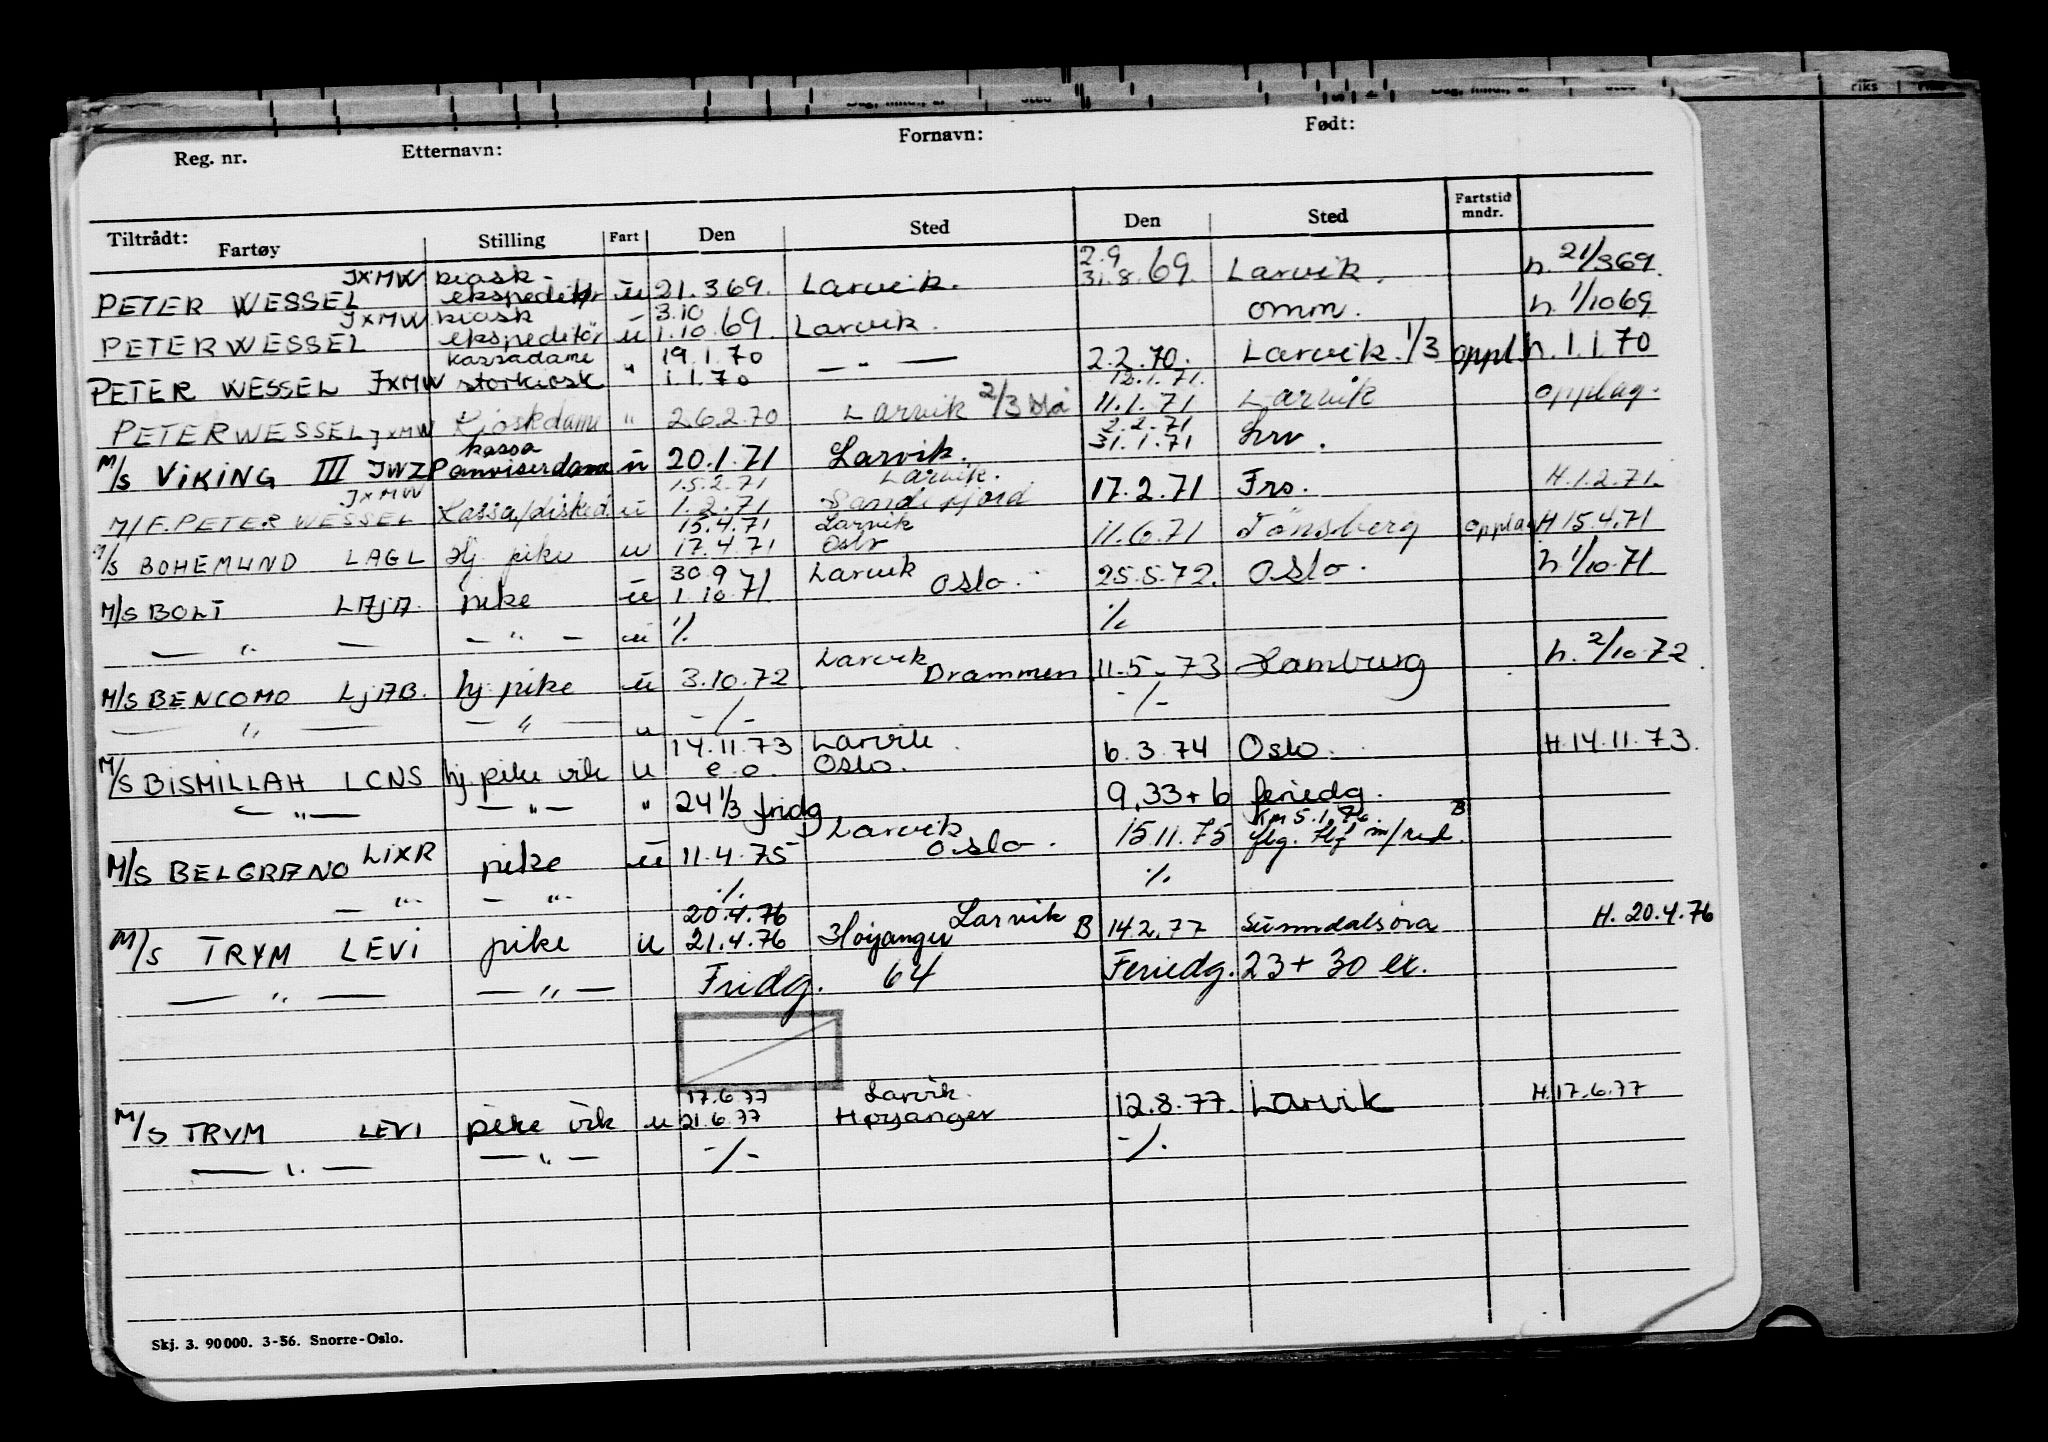 Reg. nr. Etternavn: Fornavn: Født:
Tiltrådt: Fartøy Stilling Fart Den Sted Den Sted Fartstid mndr.
JXMW kiosk 2.9
PETER WESSEL ekspeditør u 21.3 69. Larvik. 31.8.69. Larvik. h. 21/3 69.
JXMW kiosk 3.10
PETER WESSEL ekspeditör u 1.10.69 Larvik. omm. h. 1/10 69
kassadame 19.1.70
PETER WESSEL JXMW storkiosk " 1.1.70 — " — 2.2.70. Larvik. 1/3 oppl. h. 1.1.70
12.1.71.
PETER WESSEL JXMW Kioskdame " 26.2.70 Larvik 2/3 11.1.71 Larvik opplag.
kassa 2.2.71
M/S VIKING III JWZP anviserdame u 20.1.71 Larvik. 31.1.71 Lrv.
JXMW 15.2.71 Larvik.
M/F. PETER WESSEL Kassa/disked. u 1.2.71 Sandefjord 17.2.71 Frs. H.1.2.71.
15.4.71 Larvik
M/S BOHEMUND LAGL Hj pike u 17.4.71 Oslo 11.6.71 Tönsberg opplag H 15.4.71
30.9 Larvik
M/S BOLT LAJA. pike u 1.10.71 Oslo. 25.5.72. Oslo. h 1/10.71.
— " — — " — u % %
Larvik
M/S BENCOMO LJAB. hj. pike u 3.10.72 Drammen 11.5.73 Hamburg h. 2/10.72.
— " — — " — u -/- -/-
14.11.73 Larvik.
M/S BISMILLAH LCNS hj. pike vik u e.o. Oslo. 6.3.74 Oslo. H.14.11.73.
— " — — " — " 24 1/3 fridg 9,33 + 6 feriedg.
Larvik B
M/S BELGRANO LIXR pike u 11.4.75 Oslo. 15.11.75
— " — — " — % %
20.4.76 Larvik
M/S TRYM LEVI pike u 21.4.76 Høyanger B 14.2.77 Sunndalsöra H. 20.4.76
— " — — " — Fridg. 64 Feriedg. 23 + 30 ex.
17.6.77 Larvik.
M/S TRYM LEVI pike vik u 21.6.77 Høyanger 12.8.77. Larvik H.17.6.77
— " — — " — -/- -/.
Skj. 3. 90 000. 3-56. Snorre-Oslo.